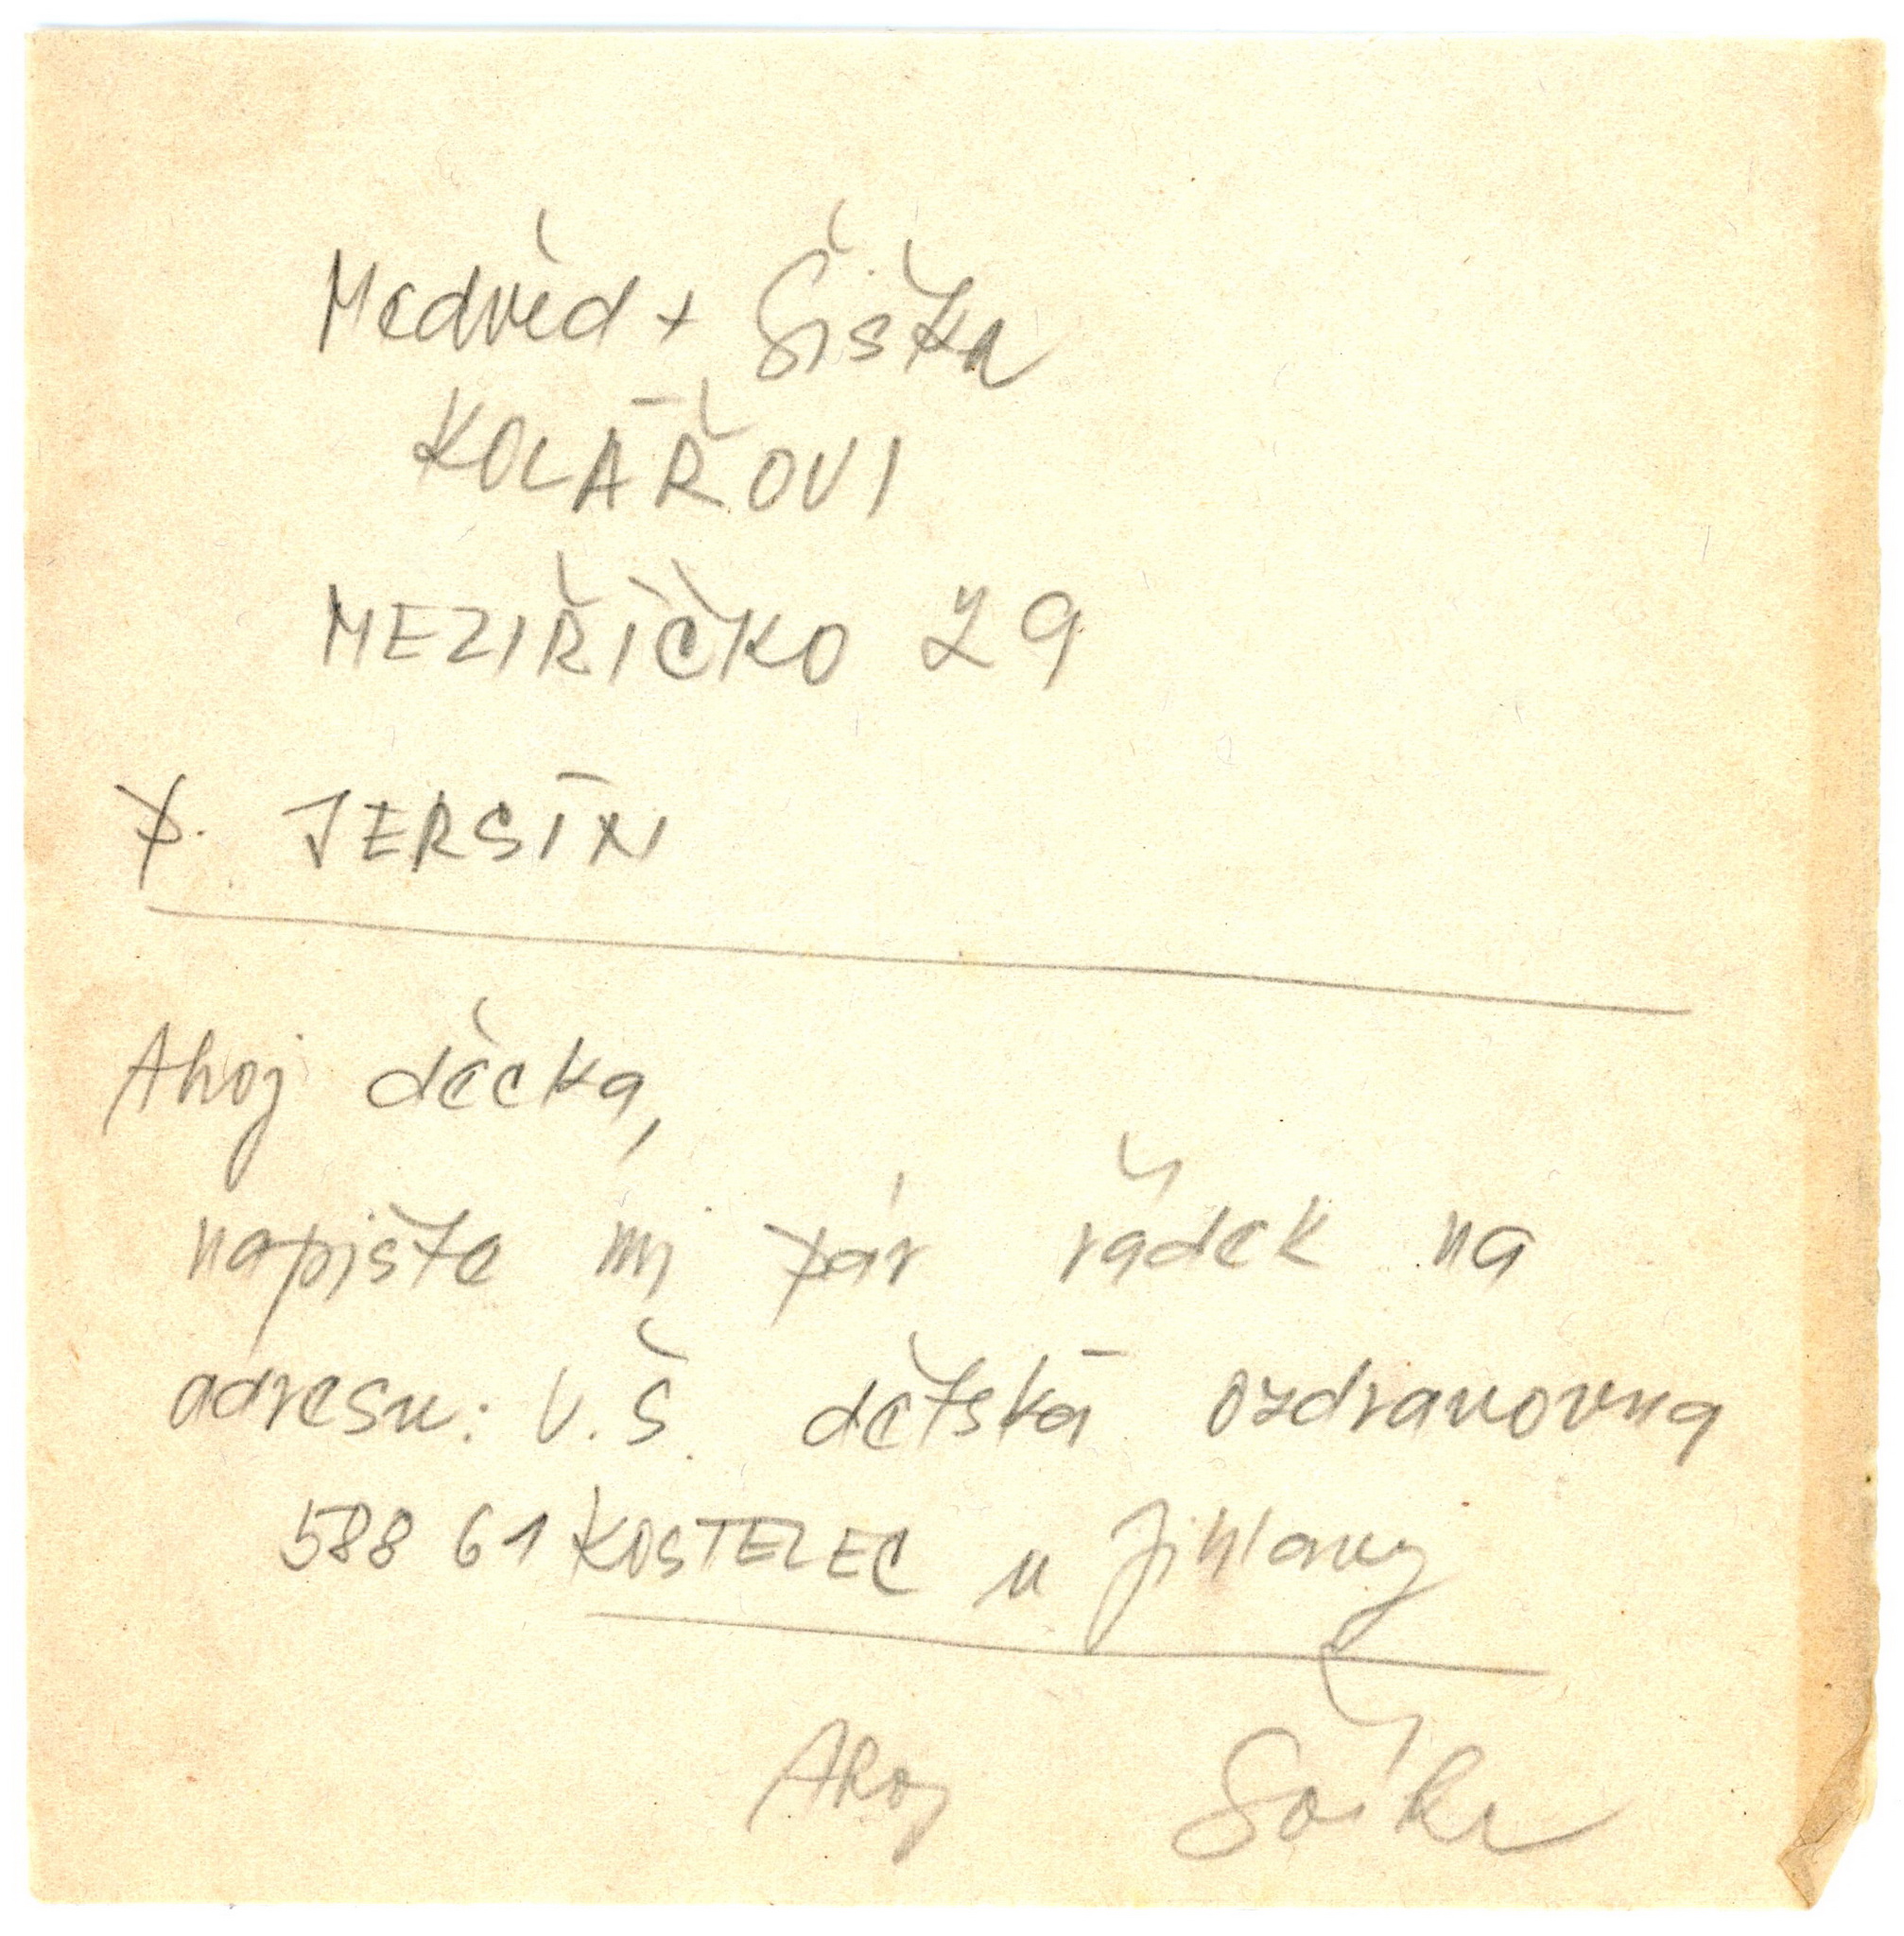 Medvěd + Šiška
KOLÁŘOVI
MEZIŘÍČKO 29
p. JERSÍN
Ahoj děcka,
napište mi pár řádek na
adresu: V.Š. dětská ozdravovna
588 61 KOSTELEC u Jihlavy
Ahoj